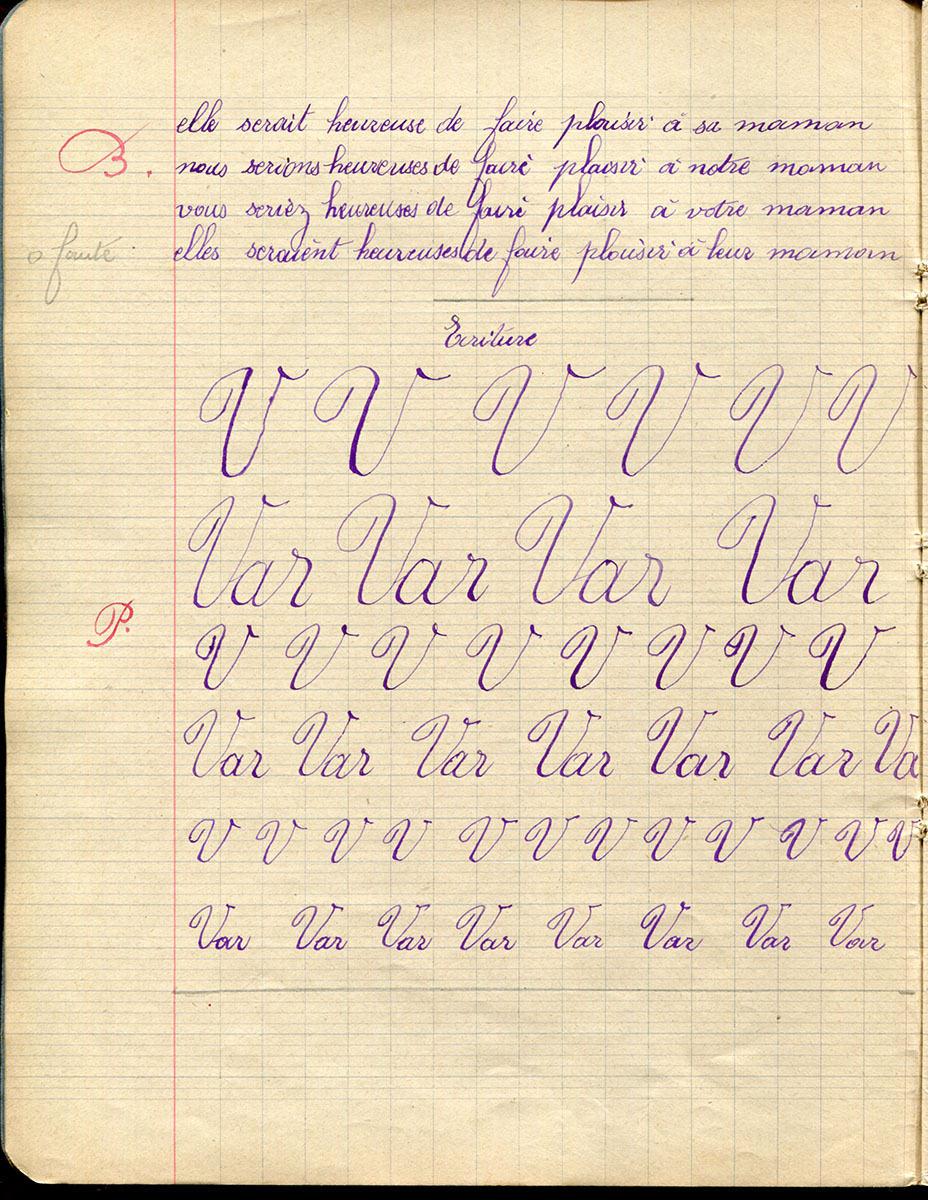 elle serait heureuse de faire plaisir à sa maman
B. nous serions heureuses de faire plaisir à notre maman
vous seriez heureuses de faire plaisir à votre maman
0 faute elles seraient heureuses de faire plaisir à leur maman
Ecriture
V V V V V V
Var Var Var Var
P.
V V V V V V V V
Var Var Var Var Var Var Va
V V V V V V V V V V V V
Var Var Var Var Var Var Var Var